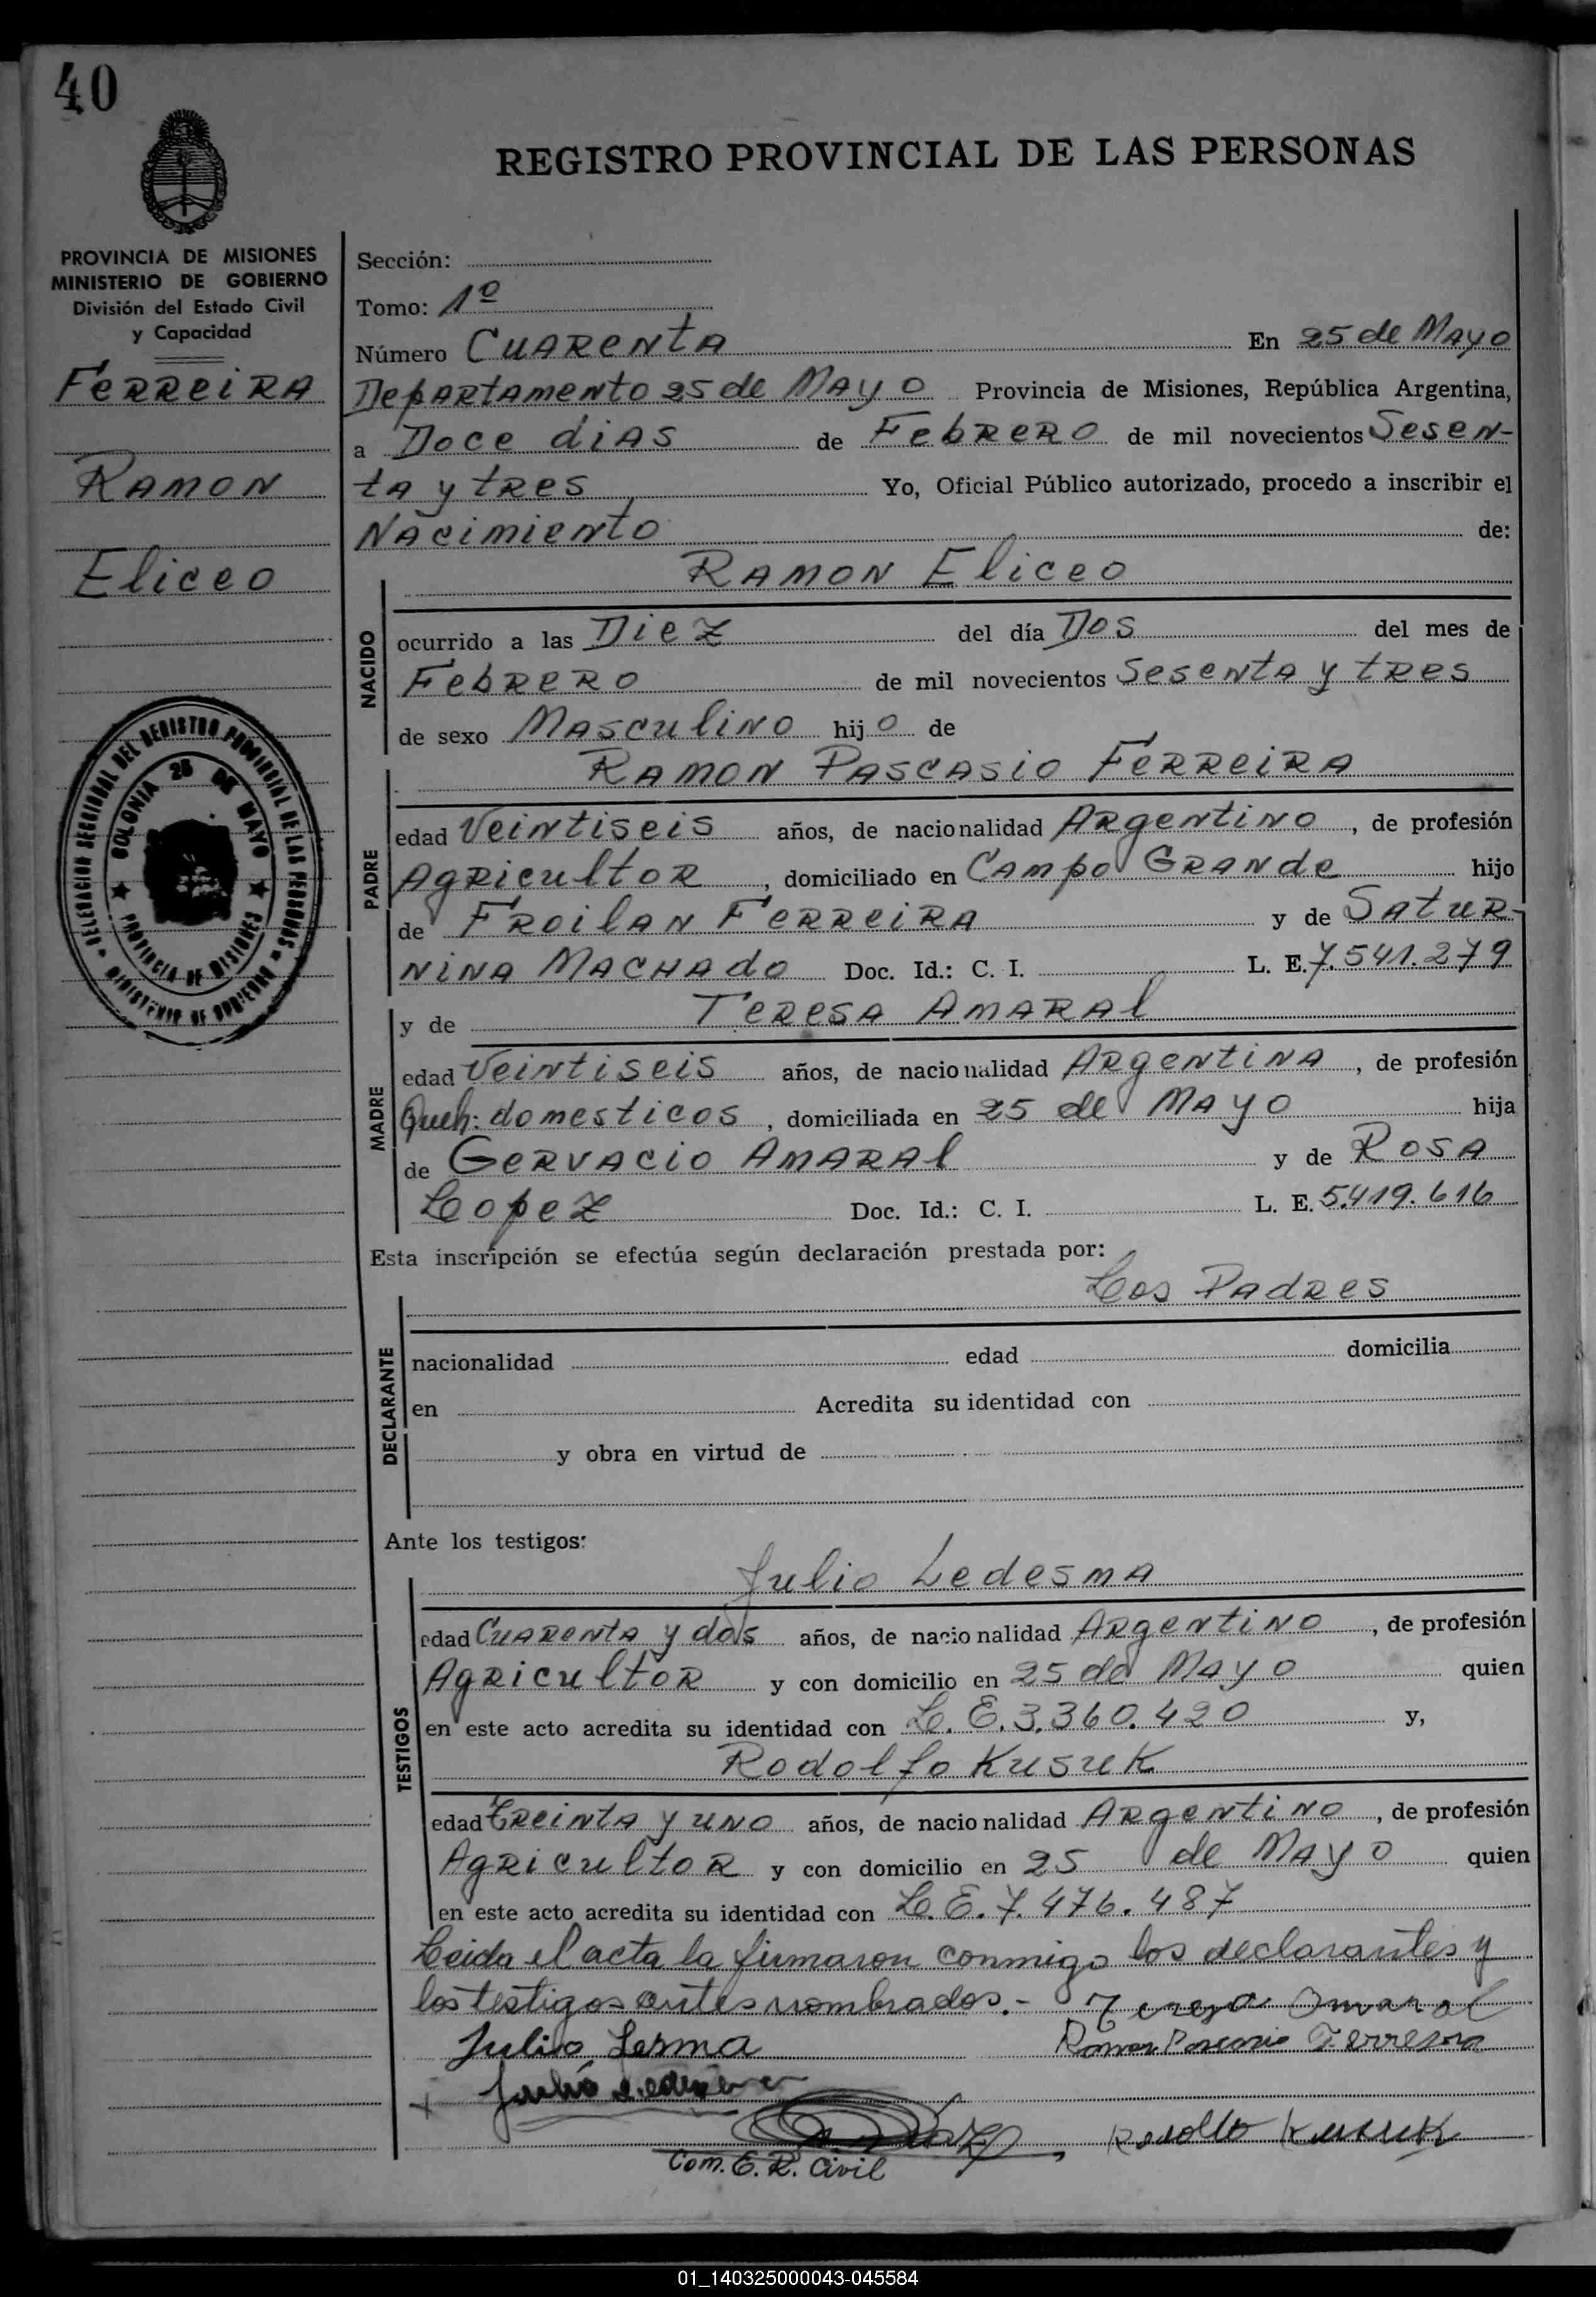 40
REGISTRO PROVINCIAL DE LAS PERSONAS
PROVINCIA DE MISIONES
MINISTERIO DE GOBIERNO
División del Estado Civil
y Capacidad
FERREIRA
RAMON
Eliceo
DELEGACION SECCIONAL DEL REGISTRO PROVINCIAL DE LAS PERSONAS
MINISTERIO DE GOBIERNO
COLONIA 25 DE MAYO
PROVINCIA DE MISIONES
Sección:
Tomo: 1º
Número CUARENTA En 25 de MAYO
Departamento 25 de MAYO Provincia de Misiones, República Argentina,
a Doce dias de Febrero de mil novecientos Sesen-
ta y tres Yo, Oficial Público autorizado, procedo a inscribir el
Nacimiento de:
RAMON Eliceo
NACIDO
ocurrido a las Diez del día Dos del mes de
Febrero de mil novecientos Sesenta y tres
de sexo Masculino hij o de
RAMON PASCASIO FERREIRA
PADRE
edad Veintiseis años, de nacionalidad Argentino, de profesión
Agricultor, domiciliado en Campo Grande hijo
de Froilan Ferreira y de Satur
nina Machado Doc. Id.: C. I. L. E. 7.541.279
MADRE
y de Teresa Amaral
edad Veintiseis años, de nacionalidad Argentina, de profesión
Queh: domesticos, domiciliada en 25 de Mayo hija
de Gervacio Amaral y de Rosa
Lopez Doc. Id.: C. I. L. E. 5.419.616
Esta inscripción se efectúa según declaración prestada por:
Los Padres
DECLARANTE
nacionalidad edad domicilia
en Acredita su identidad con
y obra en virtud de
Ante los testigos:
TESTIGOS
Julio Ledesma
edad Cuarenta y dos años, de nacionalidad Argentino, de profesión
Agricultor y con domicilio en 25 de Mayo quien
en este acto acredita su identidad con L. E. 3.360.420 y,
Rodolfo Kusuk
edad Treinta y uno años, de nacionalidad Argentino, de profesión
Agricultor y con domicilio en 25 de Mayo quien
en este acto acredita su identidad con L. E. 7.476.487
Leida el acta la firmaron conmigo los declarantes y
los testigos antes nombrados.- Teresa Amaral
Julio Lesma Ramon Pascasio Ferreira
Julio Ledesma
Rodolfo Kusuk
Com. E. R. Civil
01_140325000043-045584